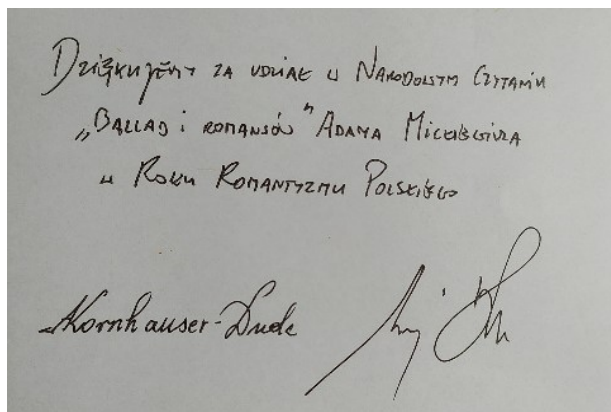 Dziękujemy za udział w Narodowym Czytaniu
„Ballad i romansów” Adama Mickiewicza
w Roku Romantyzmu Polskiego
Kornhauser-Duda